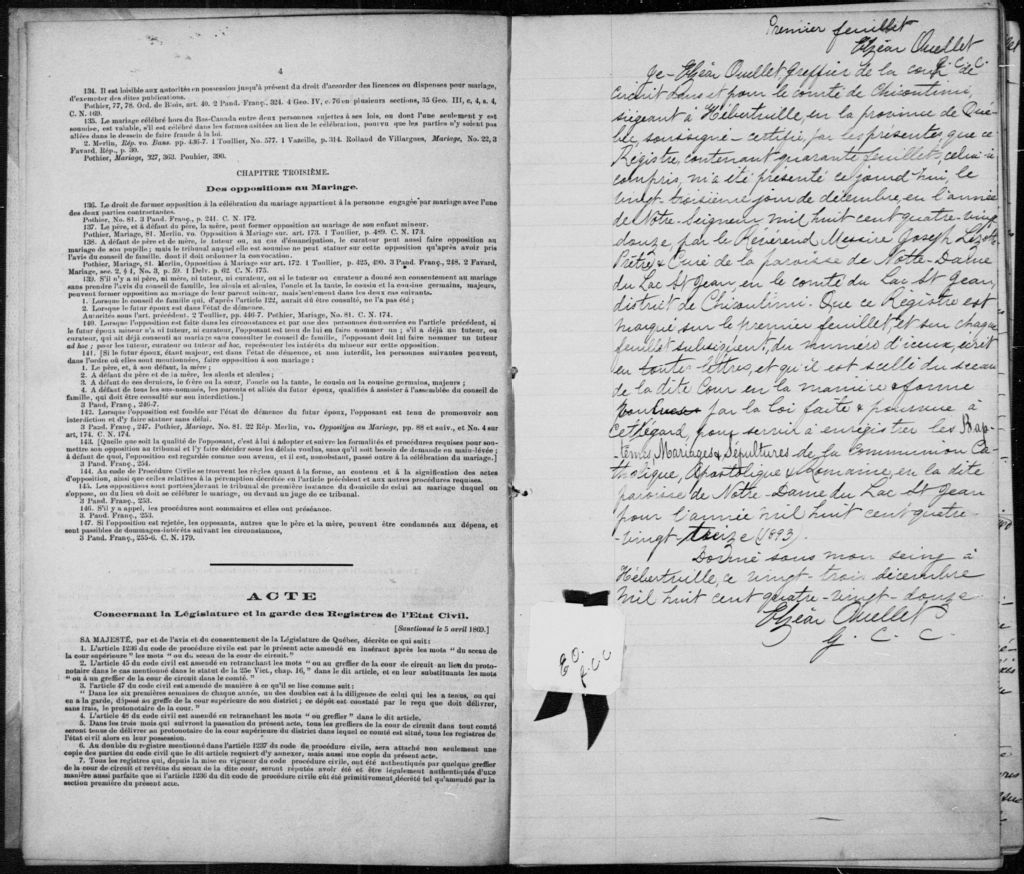 4
134. Il est loisible aux autorités en possession jusqu'à présent du droit d'accorder des licences ou dispenses pour mariage,
d'exempter des dites publications.
Pothier, 77, 78. Ord. de Blois, art. 40. 2 Pand. Franç., 324. 4 Geo. IV, c. 76 en plusieurs sections, 35 Geo. III, c, 4, s. 4,
C. N. 169.
135. Le mariage célébré hors du Bas-Canada entre deux personnes sujettes à ses lois, ou dont l'une seulement y est
soumise, est valable, s'il est célébré dans les formes usitées au lieu de la célébration, pourvu que les parties n'y soient pas
allées dans le dessein de faire fraude à la loi.
2. Merlin, Rép. vo. Bans. pp. 436-7. 1 Toullier, No. 577. 1 Vazeille, p. 314. Rolland de Villargues, Mariage, No. 22, 3
Favard. Rép., p. 30.
Pothier, Mariage, 327, 363. Pouhier, 390.
CHAPITRE TROISIÈME.
Des oppositions au Mariage.
136. Le droit de former opposition à la célébration du mariage appartient à la personne engagée par mariage avec l'une
des deux parties contractantes.
Pothier, No. 81. 3 Pand. Franç., p. 241. C. N. 172.
137. Le père, et à défaut du père, la mère, peut former opposition au mariage de son enfant mineur.
Pothier, Mariage, 81. Merlin, vo. Opposition à Mariage sur. art. 173. 1 Toullier, p. 489. C. N. 173.
138. A défaut de père et de mère, le tuteur ou, au cas d'émancipation, le curateur peut aussi faire opposition au
mariage de son pupille; mais le tribunal auquel elle est soumise ne peut statuer sur cette opposition qu'après avoir pris
l'avis du conseil de famille. dont il doit ordonner la convocation.
Pothier, Mariage, 81. Merlin, Opposition à Mariage sur art. 172. 1 Toullier, p. 425, 490. 3 Pand. Franç., 248, 2 Favard,
Mariage, sec. 2, § 1, No. 3, p. 59. 1 Delv. p. 62. C. N. 175.
139. S'il n'y a ni père, ni mère, ni tuteur, ni curateur, ou si le tuteur ou curateur a donné son consentement au mariage
sans prendre l'avis du conseil de famille, les aïeuls et aïeules, l'oncle et la tante, le cousin et la cousine germains, majeurs,
peuvent former opposition au mariage de leur parent mineur, mais seulement dans les deux cas suivants.
1. Lorsque le conseil de famille qui, d'après l'article 122, aurait dû être consulté, ne l'a pas été;
2. Lorsque le futur époux est dans l'état de démence.
Autorités sous l'art. précédent. 2 Toullier, pp. 446-7. Pothier, Mariage, No. 81. C. N. 174.
140. Lorsque l'opposition est faite dans ces circonstances et par une des personnes énumérées en l'article précédent, si
le futur époux mineur n'a ni tuteur, ni curateur, l'opposant est tenu de lui en faire nommer un; s'il a déjà un tuteur, ou
curateur, qui ait déjà consenti au mariage sans consulter le conseil de famille, l'opposant doit lui faire nommer un tuteur
ad hoc; pour les tuteur, curateur ou tuteur ad hoc, représenter les intérêts du mineur sur cette opposition.
141. [Si le futur époux, étant majeur, est dans l'état de démence, et non interdit, les personnes suivantes peuvent,
dans l'ordre où elles sont mentionnées, faire opposition à son mariage:
1. Le père, et, à son défaut, la mère;
2. A défaut du père et de la mère, les aïeuls et aïeules;
3. A défaut de ces derniers, le frère ou la sœur, l'oncle ou la tante, le cousin ou la cousine germains, majeurs;
4. A défaut de tous les sus-nommés, les parents et alliés du futur époux, qualifiés à assister à l'assemblée du conseil de
famille, qui doit être consulté sur son interdiction.]
3 Pand. Franç., 246-7.
142. Lorsque l'opposition est fondée sur l'état de démence du futur époux, l'opposant est tenu de promouvoir son
interdiction et d'y faire statuer sans délai.
3 Pand. Franç., 247. Pothier, Mariage. No. 81. 22 Rép. Merlin, vo. Opposition au Mariage, pp. 88 et suiv., et No. 4 sur
art, 174. C. N. 174.
143. [Quelle que soit la qualité de l'opposant, c'est à lui à adopter et suivre les formalités et procédures requises pour sou-
mettre son opposition au tribunal et l'y faire décider sous les délais voulus, sans qu'il soit besoin de demande en main-levée;
à défaut de quoi, l'opposition est regardée comme non avenu, et il est, nonobstant, passé outre à la célébration du mariage.]
3 Pand. Franç., 254.
144. Au code de Procédure Civile se trouvent les règles quant à la forme, au contenu et à la signification des actes
d'opposition, ainsi que celles relatives à la péremption décrétée en l'article précédent et aux autres procédures requises.
145. Les oppositions sont portées devant le tribunal de première instance du domicile de celui au mariage duquel on
s'oppose, ou du lieu où doit se célébrer le mariage, ou devant un juge de ce tribunal.
3 Pand. Franç., 253.
146. S'il y a appel, les procédures sont sommaires et elles ont préséance.
3. Pand. Franç., 253.
147. Si l'opposition est rejetée, les opposants, autres que le père et la mère, peuvent être condamnés aux dépens, et
sont passibles de dommages-intérêts suivant les circonstances,
3 Pand. Franç., 255-6. C. N. 179.
ACTE
Concernant la Législature et la garde des Registres de l'Etat Civil.
[Sanctionné le 5 avril 1869.]
SA MAJESTÉ, par et de l'avis et du consentement de la Législature de Québec, décrète ce qui suit:
1. L'article 1236 du code de procédure civile est par le présent acte amendé en insérant après les mots "du sceau de
la cour supérieure" les mots "ou du sceau de la cour de circuit."
2. L'article 45 du code civil est amendé en retranchant les mots "ou au greffier de la cour de circuit au lieu du proto-
notaire dans le cas mentionné dans le statut de la 25e Vict., chap. 16," dans le dit article, et en leur substituants les mots
"ou à un greffier de la cour de circuit dans le comté."
3. l'article 47 du code civil est amendé de manière à ce qu'il se lise comme suit:
"Dans les six premières semaines de chaque année, un des doubles est à la diligence de celui qui les a tenus, ou qui
en a la garde, déposé au greffe de la cour supérieure de son district; ce dépôt est constaté par le reçu que doit délivrer,
sans frais, le protonotaire de la cour."
4. L'article 48 du code civil est amendé en retranchant les mots "ou greffier" dans le dit article.
5. Dans les trois mois qui suivront la passation du présent acte, tous les greffiers de la cour de circuit dans tout comté
seront tenus de délivrer au protonotaire de la cour supérieure du district dans lequel ce comté est situé, tous les registres de
l'état civil alors en leur possession.
6. Au double du registre mentionné dans l'article 1237 du code de procédure civile, sera attaché non seulement une
copie des parties du code civil que le dit article requiert d'y annexer, mais aussi une copie du présent acte.
7. Tous les registres qui, depuis la mise en vigueur du code procédure civile, ont été authentiqués par quelque greffier
de la cour de circuit et revêtus du sceau de la dite cour, seront réputés avoir été et être légalement authentiqués d'une
manière aussi parfaite que si l'article 1236 du dit code de procédure civile eût été primitivement décrété tel qu'amendé par la
section première du présent acte.
Premier feuillet
Elzéar Ouellet
G. C. C.
Je - Elzéar Ouellet, Greffier de la cour de
circuit dans et pour le comté de Chicoutimi,
siégeant à Hébertville, en la province de Qué-
bec, soussigné - certifie, par les présentes, que ce
Régistre, contenant quarante feuillets, celui-ci
compris, m'a été présenté ce jourd'hui, le
vingt-troisième jour de décembre, en l'année
de Notre-Seigneur mil huit cent quatre-vingt
douze, par le Révérend Messire Joseph Lizotte
Prêtre & Curé de la paroisse de Notre-Dame
du Lac St Jean, en le comté du Lac St Jean,
district de Chicoutimi. Que ce Régistre est
marqué sur le premier feuillet, et sur chaque
feuillet subséquent, du numéro d'iceux, écrit
en toutes-lettres, et qu'il est scellé du sceau
de la dite Cour en la manière & forme
par la loi faite & pourvue à
cet égard, pour servir à enregistrer les Bap-
têmes, Mariages & Sépultures de la Communion Ca-
tholique, Apostolique & Romaine, en la dite
paroisse de Notre-Dame du Lac St Jean
pour l'année mil huit cent quatre
-vingt-treize (1893).
Donné sous mon seing à
Hébertville, ce vingt-trois décembre
mil huit cent quatre-vingt-douze.
Elzéar Ouellet
G. C. C.